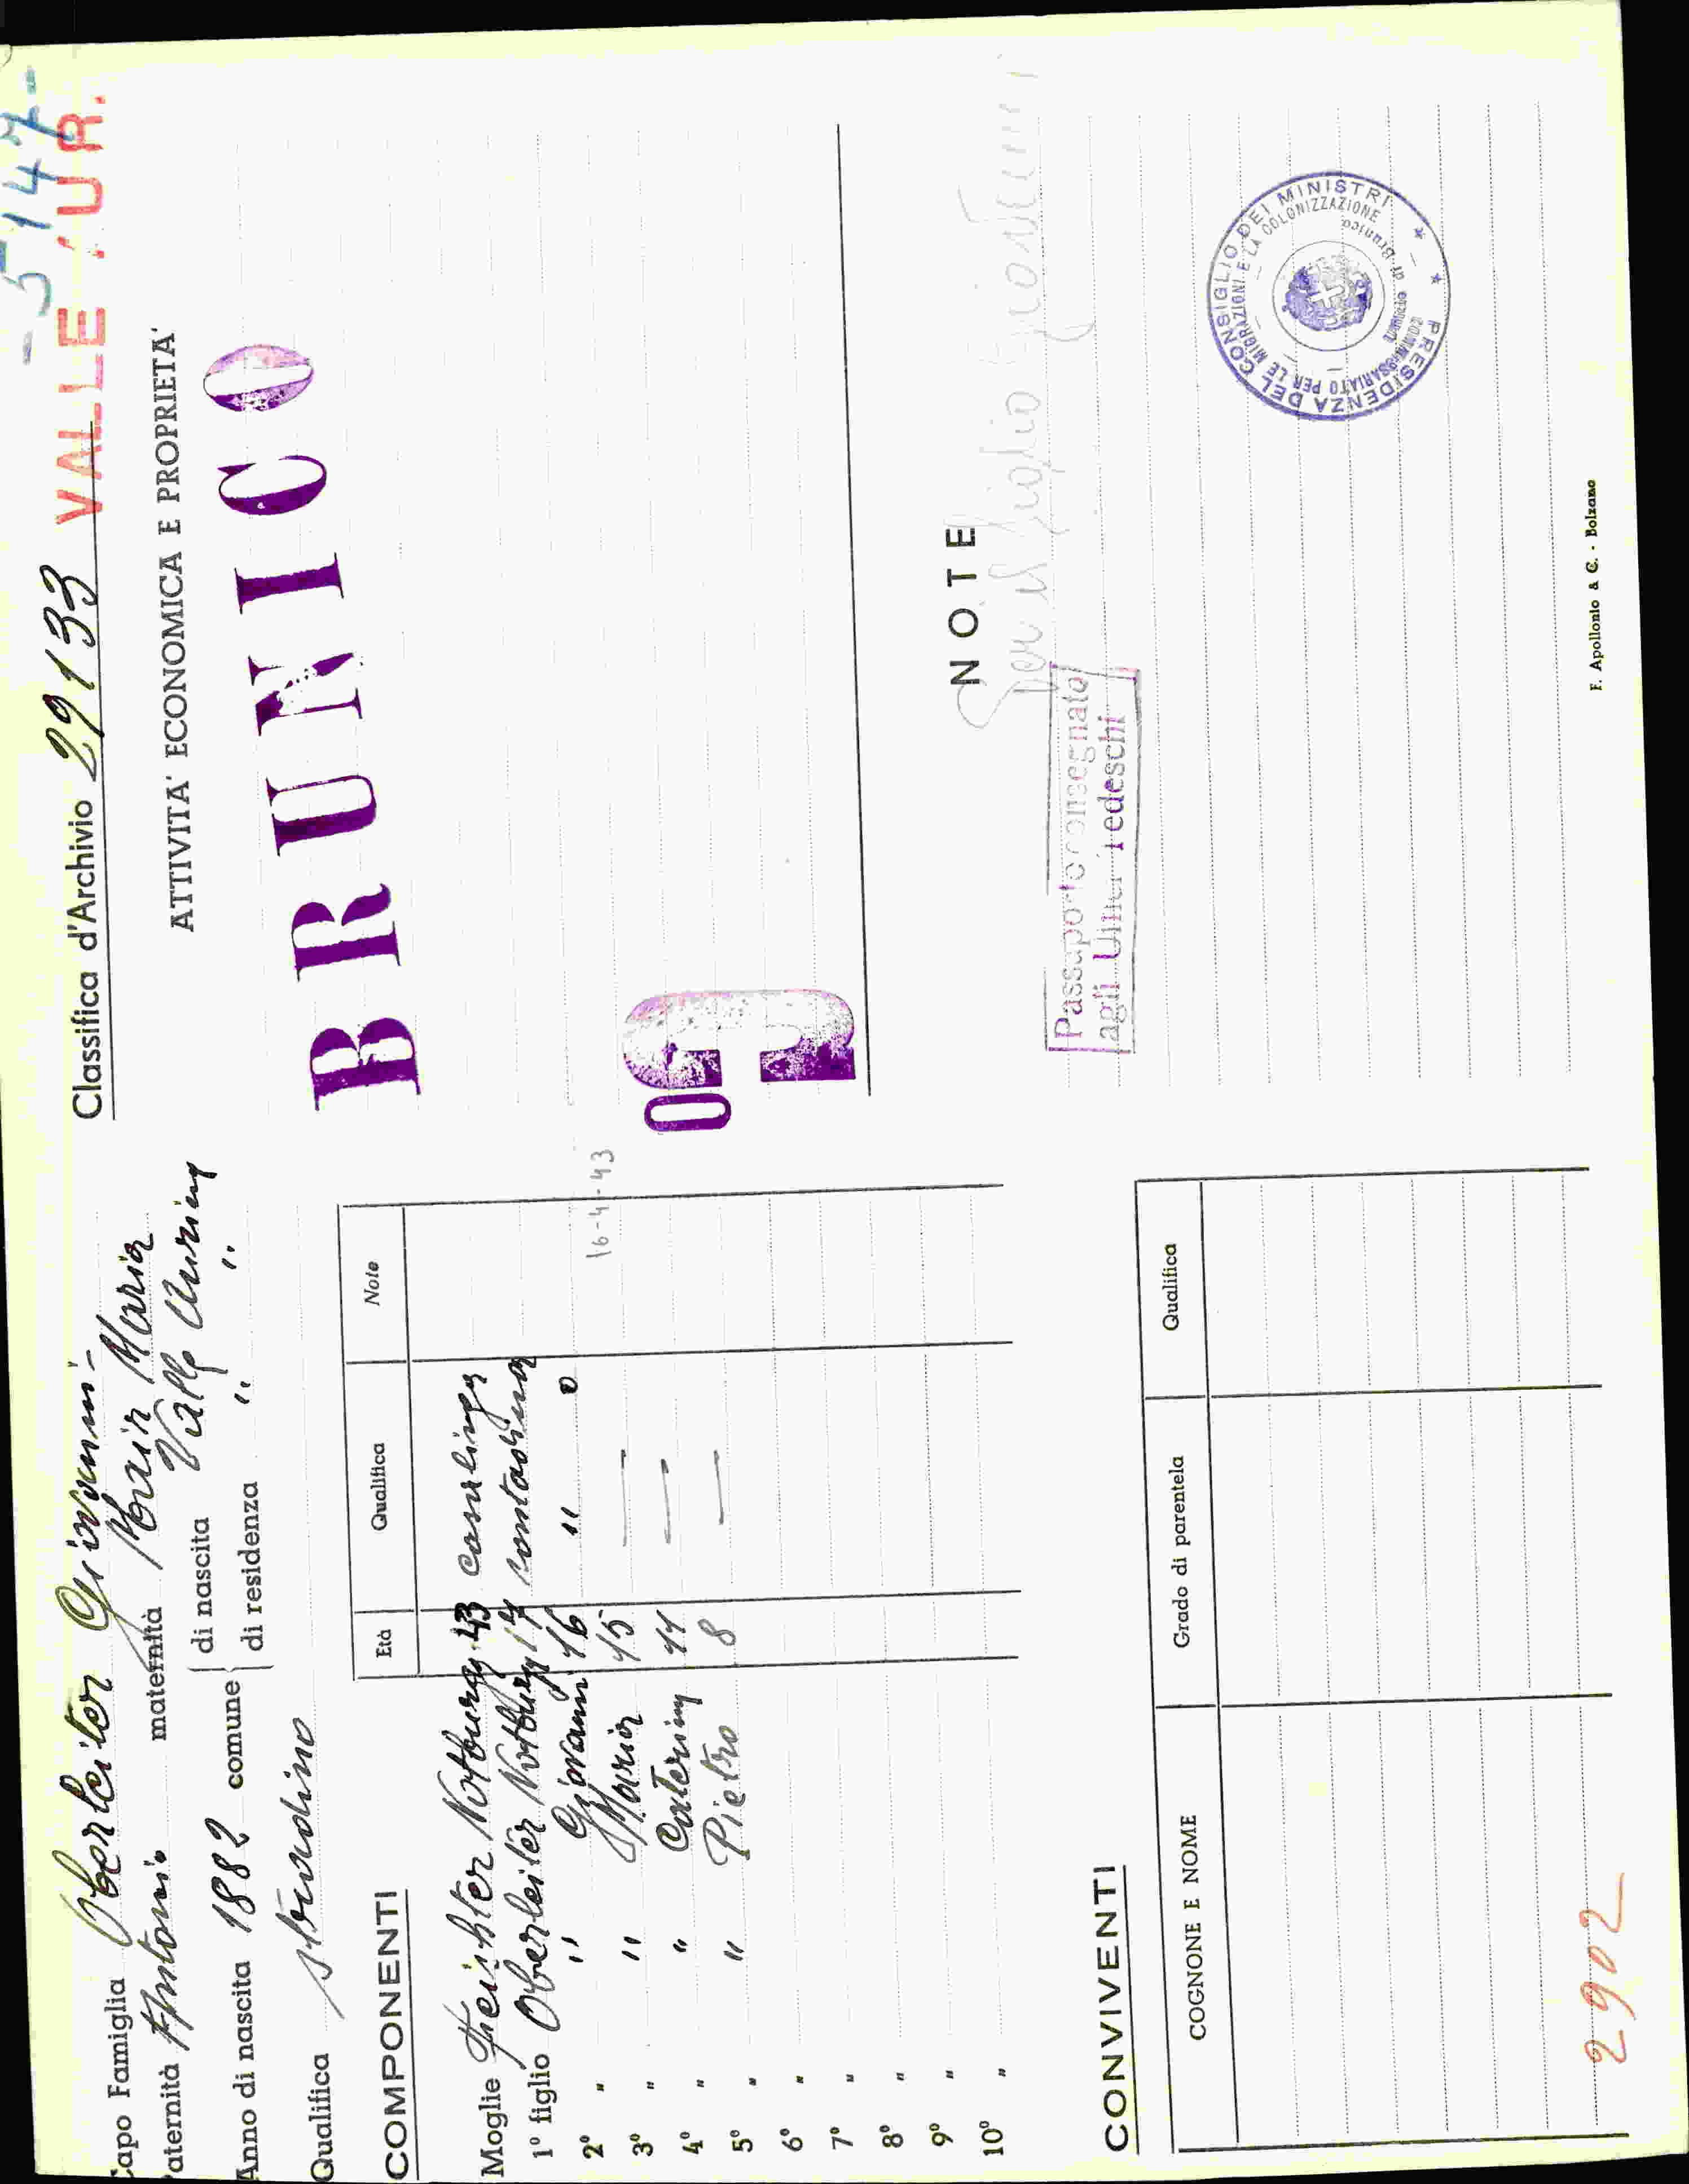 - 5147 -
Classifica d'Archivio 29133 VALLE AUR.
Capo Famiglia Oberleiter Giovanni
Paternità Antonio maternità Mair Maria
Anno di nascita 1882 comune di nascita Valle Aurina
di residenza " " "
Qualifica
ATTIVITA' ECONOMICA E PROPRIETA'
BRUNICO
COMPONENTI Età Qualifica Note
Moglie Feichter Notburga 43 casalinga
1º figlio Oberleiter Notburga 17 contadina
2º " " Giovanni 16 " o 16-4-43
3º " " Maria 15 —
4º " " Caterina 11 —
5º " " Pietro 8 —
6º "
7º "
8º "
9º "
10º "
NOTE
per il figlio Giovanni
Passaporto consegnato
agli Uffici Tedeschi
PRESIDENZA DEL CONSIGLIO DEI MINISTRI
COMMISSARIATO PER LE MIGRAZIONI E LA COLONIZZAZIONE
di Brunico
CONVIVENTI
COGNONE E NOME Grado di parentela Qualifica
2902
F. Apollonio & C. - Bolzano